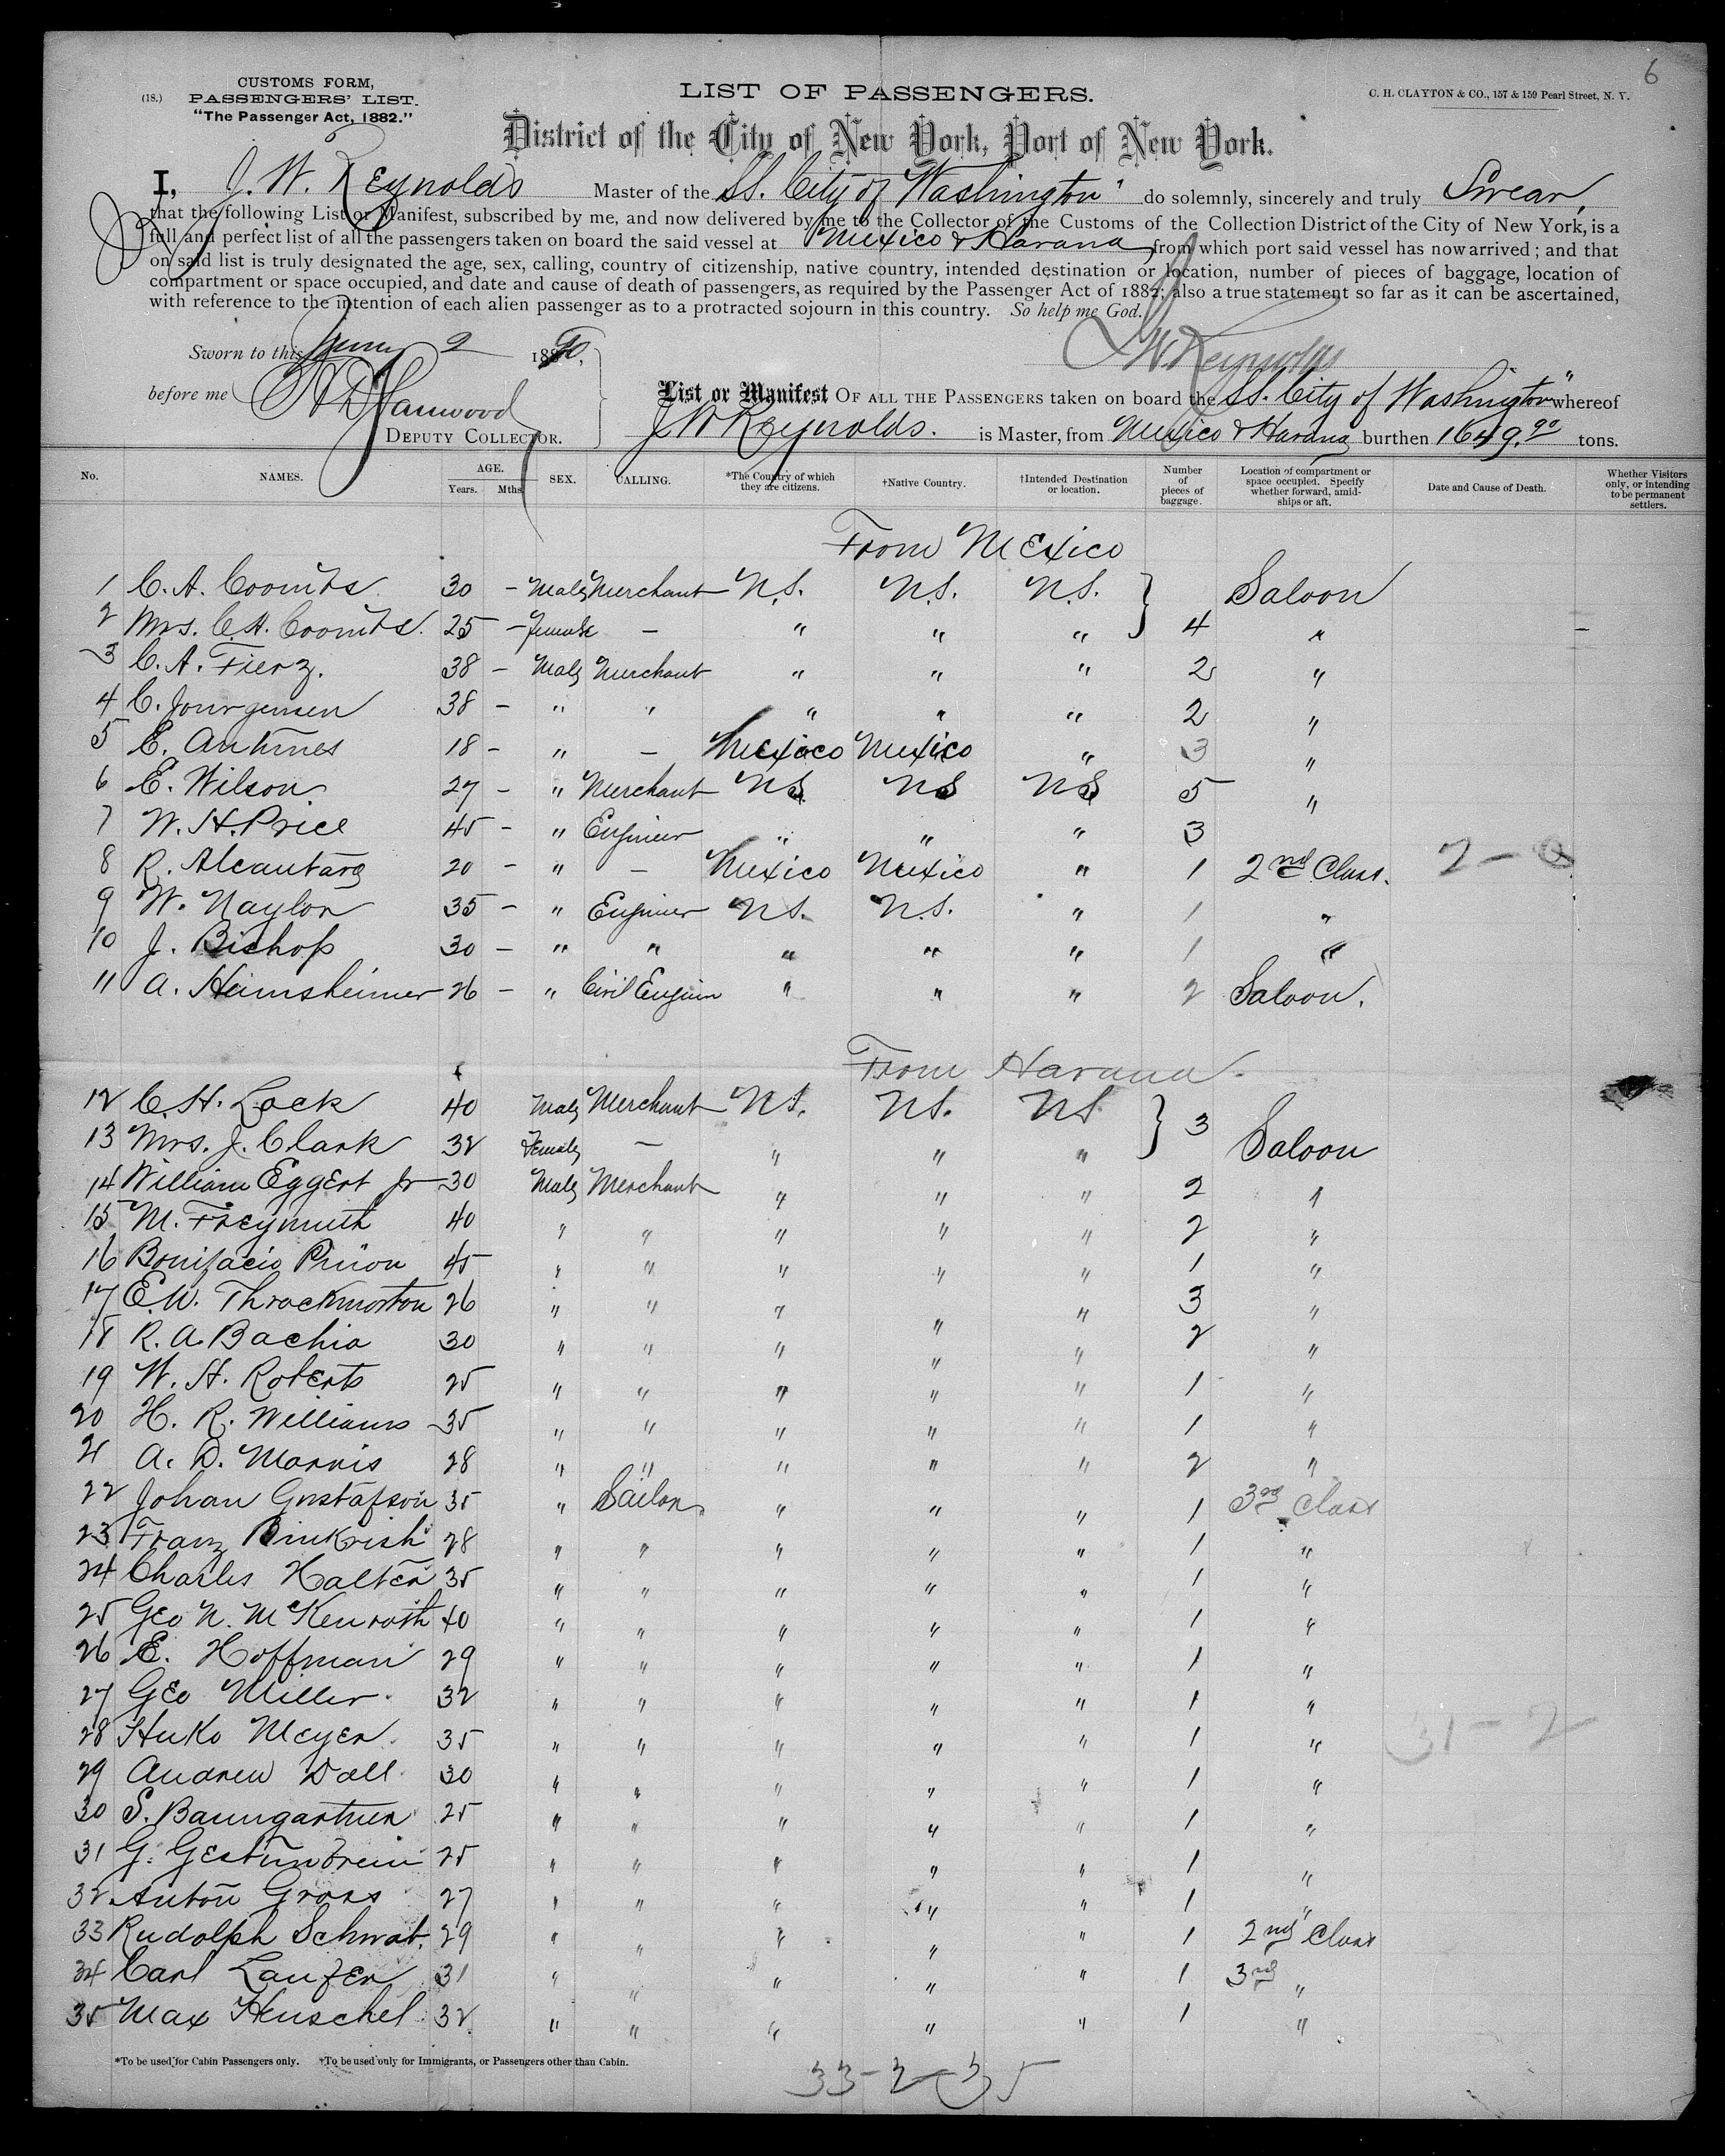 6
CUSTOMS FORM,
(18.) PASSENGERS' LIST.
"The Passenger Act, 1882."
LIST OF PASSENGERS.
C. H. CLAYTON & CO., 157 & 159 Pearl Street, N. Y.
District of the City of New York, Port of New York.
I, J. W. Reynolds Master of the SS. City of Washington" do solemnly, sincerely and truly Swear,
that the following List or Manifest, subscribed by me, and now delivered by me to the Collector of the Customs of the Collection District of the City of New York, is a
full and perfect list of all the passengers taken on board the said vessel at Mexico & Havana from which port said vessel has now arrived; and that
on said list is truly designated the age, sex, calling, country of citizenship, native country, intended destination or location, number of pieces of baggage, location of
compartment or space occupied, and date and cause of death of passengers, as required by the Passenger Act of 1882; also a true statement so far as it can be ascertained,
with reference to the intention of each alien passenger as to a protracted sojourn in this country. So help me God.
Sworn to this 2 1890,
J W Reynolds
before me
DEPUTY COLLECTOR.
List or Manifest OF ALL THE PASSENGERS taken on board the SS. City of Washington" whereof
J W Reynolds. is Master, from Mexico & Havana burthen 1649.90 tons.
No. NAMES. AGE. Years. Mths. SEX. CALLING. *The Country of which they are citizens. †Native Country. †Intended Destination or location. Number of pieces of baggage. Location of compartment or space occupied. Specify whether forward, amidships or aft. Date and Cause of Death. Whether Visitors only, or intending to be permanent settlers.
From Mexico
1 C. A. Coombs 30 - Male Merchant U.S. U.S. U.S. Saloon
2 Mrs. C. A. Coombs. 25 - female - " " " 4 "
3 C. A. Fierz. 38 - Male Merchant " " " 2 "
4 C. Jourgensen 38 - " " " " " 2 "
5 E. Antunes 18 - " - Mexico Mexico " 3 "
6 E. Wilson 27 - " Merchant US US US 5 "
7 W. H. Price 45 - " Engineer " " " 3
8 R. Alcantara 20 - " - Mexico Mexico " 1 2nd Class. 2 -
9 W. Naylor 35 - " Engineer U.S. U.S. " 1 "
10 J. Bishop 30 - " " " " " 1 "
11 A. Heimsheimer 26 - " Civil Engineer " " " 2 Saloon.
From Havana.
12 C. H. Lock 40 Male Merchant U.S. U.S. US 3
13 Mrs. J. Clark 32 Female - " " " Saloon
14 William Eggert Jr 30 Male Merchant " " " 2 "
15 M. Freymuth 40 " " " " " 2 "
16 Bonifacio Piñon 45 " " " " " 1 "
17 E. W. Throckmorton 26 " " " " " 3 "
18 R. A. Bachia 30 " " " " " 2 "
19 W. H. Roberts 25 " " " " " 1 "
20 H. R. Williams 35 " " " " " 1 "
21 A. D. Marnis 28 " " " " " 2 "
22 Johan Gustafson 35 " Sailor " " " 1 3rd Class
23 Franz 28 " " " " " 1 "
24 Charles Halten 35 " " " " " 1 "
25 Geo N. 40 " " " " " 1 "
26 E. Hoffman 29 " " " " " 1 "
27 Geo Miller 32 " " " " " 1 "
28 Huko Meyer 35 " " " " " 1 " 31 - 2
29 Andrew Doll 30 " " " " " 1 "
30 S. Baumgartner 25 " " " " " 1 "
31 G. 25 " " " " " 1 "
32 Anton Gross 27 " " " " " 1 "
33 Rudolph Schwab. 29 " " " " " 1 2nd Class
34 Carl Laufer 31 " " " " " 1 3rd "
35 Max Henschel 32 " " " " " 1 "
*To be used for Cabin Passengers only. †To be used only for Immigrants, or Passengers other than Cabin.
33-2-35